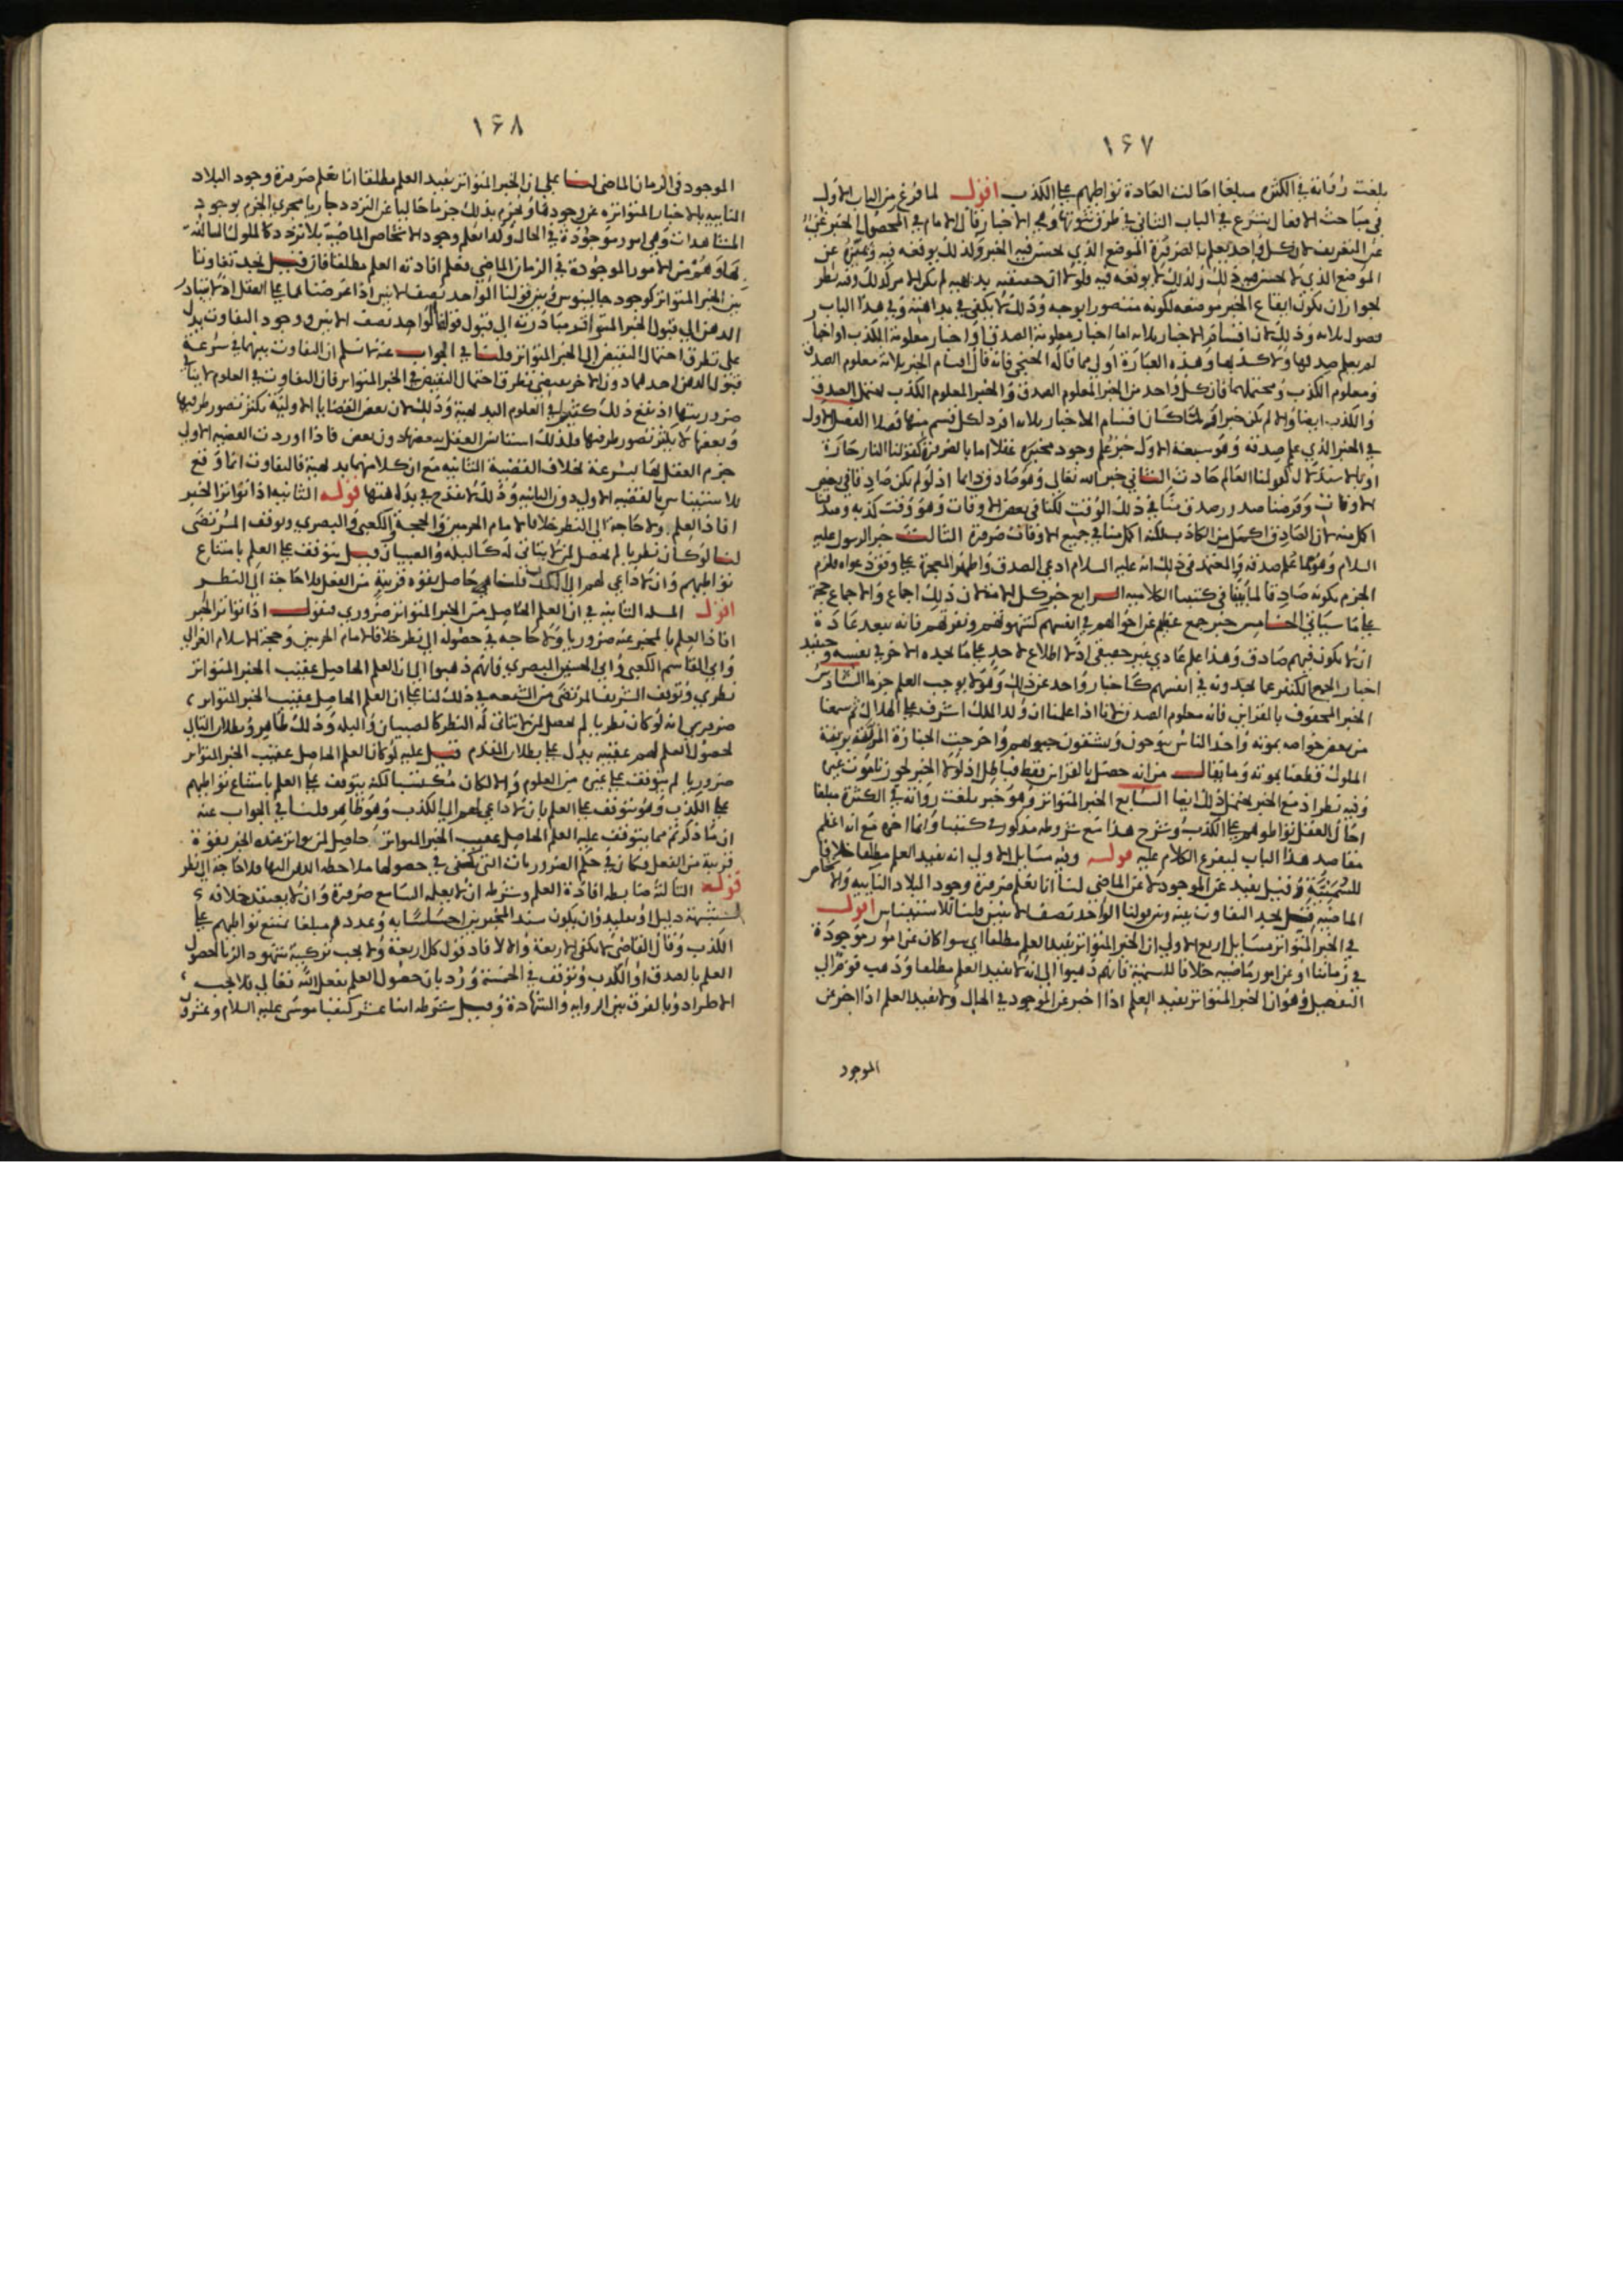 ١٦٧
بلغت رواته في الكثرة مبلغا احالت العادة تواطيهم على الكذب اقول لما فرغ من الباب الاول
في مباحث الافعال يشرع في الباب الثاني في طرق ثبوتها وهي الاخبار قال الامام في المحصول الخبر غني
عن التعريف لان كل واحد يعلم بالضرورة الموضع الذي يحسن فيه الخبر ولذلك يوقعه فيه ويميزه عن
الموضع الذي لا يحسن فيه ذلك ولذلك لا يوقعه فيه فلولا ان حقيقته بديهية لم يكن الامر كذلك وفيه نظر
لجواز ان يكون ايقاع الخبر موضعه لكونه متصورا بوجه وذلك لا يكفي في بداهته وفي هذا الباب
فصول ثلاثة وذلك لان اقسام الاخبار ثلاثة اما اخبار معلومة الصدق او اخبار معلومة الكذب او اخبار
لم يعلم صدقها ولا كذبها وهذه العبارة اولى مما قاله الخنجي فانه قال اقسام الخبر ثلاثة معلوم الصدق
ومعلوم الكذب ومحتملهما فان كل واحد من الخبر المعلوم الصدق والخبر المعلوم الكذب يحتمل الصدق
والكذب ايضا والا لم يكن خبرا ولما كان اقسام الاخبار ثلاثة افرد لكل قسم منها فصلا الفصل الاول
في الخبر الذي علم صدقه وهو سبعة الاول خبر علم وجود مخبره عقلا اما بالضرورة كقولنا النار حارة
او بالاستدلال كقولنا العالم حادث الثاني خبر الله تعالى وهو صادق دايما اذ لو لم يكن صادقا في بعض
الاوقات وفرضنا صدور صدق منا في ذلك الوقت لكنا في بعض الاوقات وهو وقت كذبه وصدقنا
اكمل منه لان الصادق اكمل من الكاذب لكنه اكمل منا في جميع الاوقات ضرورة الثالث خبر الرسول عليه
السلام وهو مما علم صدقه والمعتمد في ذلك انه عليه السلام ادعى الصدق واظهر المعجزة على وفق دعواه فلزم
الجزم بكونه صادقا لما بينا في كتبنا الكلامية الرابع خبر كل الامة لان ذلك اجماع والاجماع حجة
على ما سياتي الخامس خبر جمع عظيم عن احوالهم في انفسهم كشهوتهم ونفرتهم فانه يبعد عادة
ان لا يكون فيهم صادق وهذا علم عادي غير حقيقي اذ لا اطلاع لاحد على ما يجده الاخر في نفسه وحينئذ
اخبار الجمع الكثير عما يجدونه في انفسهم كاخبار واحد عن ذلك وهو لا يوجب العلم جزما السادس
الخبر المحفوف بالقراين فانه معلوم الصدق لانا اذا علمنا ان ولد الملك اشرف على الهلاك ثم سمعنا
من بعض خواصه بموته واخذ الناس ينوحون ويشقون جيوبهم واخرجت الجنازة المزينة بزينة
الملوك قطعنا بموته وما يقال من انه حصل بالقراين فقط فباطل اذ لولا الخبر لجوزنا موت غيره
وفيه نظر اذ مع الخبر يحتمل ذلك ايضا السابع الخبر المتواتر وهو خبر بلغت رواته في الكثرة مبلغا
احال العقل تواطوهم على الكذب وشرح هذا مع شروطه مذكور في كتبنا وانما اخره مع انه اعظم
مقاصد هذا الباب ليفرع الكلام عليه قوله وفيه مسايل الاولى انه يفيد العلم مطلقا خلافا
للسمنية وقيل يفيد عن الموجود لا عن الماضي لنا انا نعلم ضرورة وجود البلاد النايية والاشخاص
الماضية قيل يجد التفاوت بينه وبين قولنا الواحد نصف الاثنين قلنا للاستيناس اقول
في الخبر المتواتر مسايل اربع الاولى ان الخبر المتواتر يفيد العلم مطلقا اي سوا كان عن امور موجودة
في زماننا او عن امور ماضية خلافا للسمنية فانهم ذهبوا الى انه لا يفيد العلم مطلقا وذهب قوم الى
التفصيل وهو ان الخبر المتواتر يفيد العلم اذا اخبر عن الموجود في الحال ولا يفيد العلم اذا اخبر عن
الموجود
١٦٨
الموجود في الزمان الماضي لنا على ان الخبر المتواتر يفيد العلم مطلقا انا نعلم ضرورة وجود البلاد
النايية بالاخبار المتواترة عن وجودها ونجزم بذلك جزما خاليا عن التردد جاريا مجرى الجزم بوجود
المشاهدات وهي امور موجودة في الحال وكذا نعلم وجود الاشخاص الماضية بلا تردد كالملوك السالفة
وهو من الامور الموجودة في الزمان الماضي فعلم افادته العلم مطلقا فان قيل يجد تفاوتا
بين الخبر المتواتر كوجود جالينوس وبين قولنا الواحد نصف الاثنين اذا عرضناهما على العقل اذ لا يتبادر
الذهن الى قبول الخبر المتواتر مبادرته الى قبول قولنا الواحد نصف الاثنين ووجود التفاوت يدل
على تطرق احتمال النقيض الى الخبر المتواتر قلنا في الجواب عنه لا نسلم ان التفاوت بينهما في سرعة
قبول الذهن احدهما دون الاخر يقتضي تطرق احتمال النقيض في الخبر المتواتر فان التفاوت في العلوم لا ينافي
ضروريتها اذ يقع ذلك كثيرا في العلوم البديهية وذلك لان بعض القضايا الاولية يكثر تصور طرفيها
وبعضها لا يكثر تصور طرفيها فلذلك استيناس العقل ببعضها دون بعض فاذا اوردت القضية الاولى
جزم العقل بها بسرعة بخلاف القضية الثانية مع ان كلا منهما بديهية فالتفاوت انما وقع
للاستيناس بالقضية الاولى دون الثانية وذلك لا يقدح في بداهتها قوله الثانية اذا تواتر الخبر
افاد العلم ولا حاجة الى النظر خلافا لامام الحرمين والحجة والكعبي والبصري وتوقف المرتضى
لنا لو كان نظريا لم يحصل لمن لا يتاتى له كالبله والصبيان قيل يتوقف على العلم بامتناع
تواطيهم وان لا داعي لهم الى الكذب قلنا هي حاصل بقوة قريبة من الفعل فلا حاجة الى النظر
اقول المسلة الثانية في ان العلم الحاصل من الخبر المتواتر ضروري فنقول اذا تواتر الخبر
افاد العلم بالمخبر عنه ضروريا ولا حاجة في حصوله الى نظر خلافا لامام الحرمين وحجة الاسلام الغزالي
وابي القاسم الكعبي وابي الحسين البصري فانهم ذهبوا الى ان العلم الحاصل عقيب الخبر المتواتر
نظري وتوقف الشريف المرتضى من الشيعة في ذلك لنا على ان العلم الحاصل عقيب الخبر المتواتر
ضروري انه لو كان نظريا لم يحصل لمن لا يتاتى له النظر كالصبيان والبله وذلك ظاهر وبطلان التالي
لحصول العلم لهم عقيبه يدل على بطلان المقدم قيل عليه لو كان العلم الحاصل عقيب الخبر المتواتر
ضروريا لم يتوقف على غيره من العلوم والا لكان مكتسبا لكنه يتوقف على العلم بامتناع تواطيهم
على الكذب وهو يتوقف على العلم بان لا داعي لهم الى الكذب وهو ظاهر قلنا في الجواب عنه
ان ما ذكرتم مما يتوقف عليه العلم الحاصل عقيب الخبر المتواتر حاصل لمن تواتر عنده الخبر بقوة
قريبة من الفعل فكان في حكم الضروريات التي يكتفى في حصولها ملاحظة الذهن اليها فلا حاجة الى نظر
قوله الثالثة ضابطه افادة العلم وشرطه ان لا يعلمه السامع ضرورة وان لا يعتقد خلافه
لشبهة دليل او تقليد وان يكون سند المخبرين احساسا به وعددهم مبلغا يمتنع تواطيهم على
الكذب وقال القاضي لا يكفي الاربعة والا لافاد قول كل اربعة ولا يجب تزكية شهود الزنا لحصول
العلم بالصدق او الكذب وتوقف في الخمسة ورد بان حصول العلم بفعل الله تعالى فلا يجب
الاطراد وبالفرق بين الرواية والشهادة وقيل شرطه اثنا عشر كنقبا موسى عليه السلام وعشرون